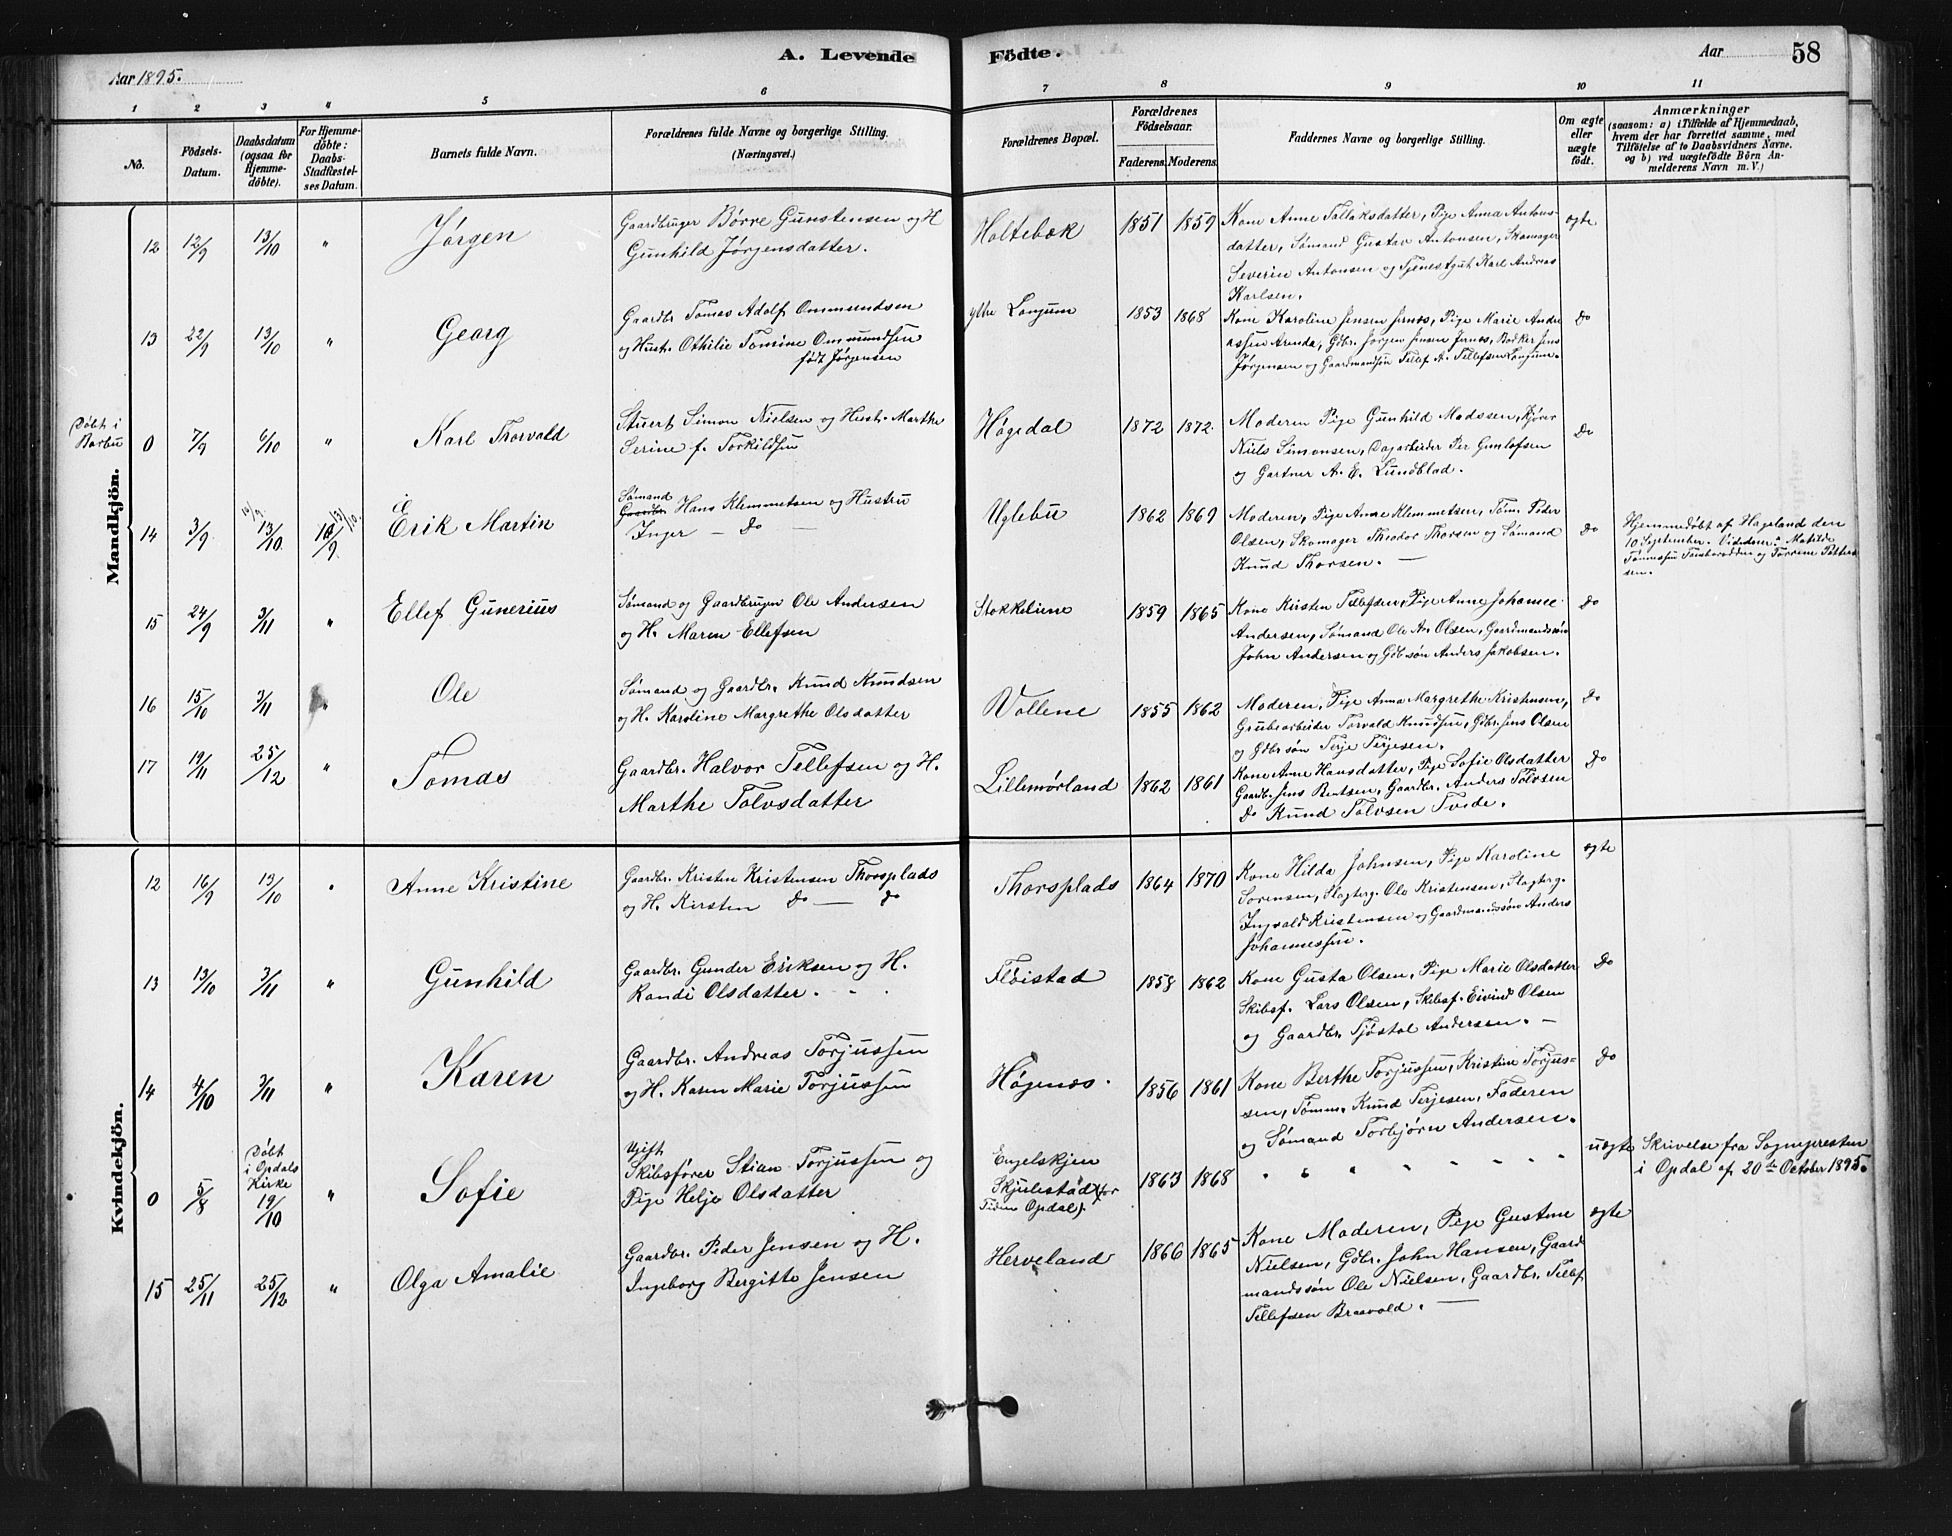 Aar 1895.
A. Levende Födte.
Aar
58
1 2 3 " 5 6 7 8 9 10 11
No.
Födsels-Datum.
Daabsdatum (ogsaa for Hjemme-döbte).
For Hjemme-döbte: Daabs-Stadfæstel-ses Datum.
Barnets fulde Navn.
Forældrenes fulde Navne og borgerlige Stilling.
(Næringsvei.)
Forældrenes Bopæl.
Forældrenes Födselsaar.
Faderens. Moderens.
Faddernes Navne og borgerlige Stilling.
Om ægte eller uægte födt.
Anmærkninger
(saasom: a) i Tilfælde af Hjemmedaab, hvem der har forrettet samme, med Tilföielse af to Daabsvidners Navne, og b) ved uægtefödte Börn An-melderens Navn m. V.)
Mandkjön.
12 12/9 13/10 " Jørgen
Gaardbruger Børre Gunstensen og H.
Gunhild Jørgensdatter.
Holtebæk 1851 1859
Kone Anne Tallaksdatter, Pige Anna Antons-
datter, Sømand Gustav Antonsen, Skomager
Severin Antonsen og Tjenestgut Karl Andreas
Karlsen.
ægte
13 22/9 13/10 " Georg
Gaardbr. Tomas Adolf Ommundsen
og Hust. Othilie Tomine Ommundsen
født Jørgensen
ytre Longum 1853 1868
Kone Karoline Jensen Jernæs, Pige Marie Andre
assen Arendal, Gdbr. Jørgen Jensen Jernæs, Bødker Jens
Jørgensen og Gaardmandssøn Tellef A. Tellefsen Longum.
do
Døbt i
Barbu
0 7/9 6/10 " Karl Thorvald
Stuert Simon Nielsen og Hust. Marthe
Serine f. Torkildsen
Høgedal 1872 1872.
Moderen Pige Gunhild Madssen, Kjører
Niels Simonsen, Dagarbeider Per Gunlofsen
og Gartner A. E. Lundblad.
do
14 3/9 10/9. 13/10 10/9 13/10. Erik Martin
Sømand
Gaardbr. Hans Klemmetsen og Hustru
Inger — do —
Uglebu 1862 1869
Moderen, Pige Anne Klemmetsen, Tøm. Peder
Olsen, Skomager Theodor Thorsen og Sømand
Knud Thorsen. —
do
Hjemmedøbt af Hageland den
10 September. Vidner: Matilde
Tønnessen og Torrine Petter
sen.
15 24/9 3/11 " Ellef Gunerius
Sømand og Gaardbruger Ole Andersen
og H. Maren Ellefsen
Stokkeliene 1859 1865
Kone Kirsten Tellefsen, Pige Anne Johanne
Andersen, Sømand Ole A. Olsen, Gaardmandssøn
John Andersen og Gdb. søn Anders Jakobsen.
do
16 15/10 3/11 " Ole
Sømand og Gaardbr. Knud Knudsen
og H. Karoline Margrethe Olsdatter
Vollene 1855 1862
Moderen, Pige Anna Margrethe Kristensen,
Grubearbeider Torvald Knudsen, Gdbr. Jens Olsen
og Gdbr. søn Terje Terjesen.
do
17 19/11 25/12 " Tomas
Gaardbr. Halvor Tellefsen og H.
Marthe Tolvsdatter
Lillemørland 1862 1861
Kone Anne Hansdatter, Pige Sofie Olsdatter
Gaardbr. Jens Bentsen, Gaardbr. Anders Tolvsen
do Knud Tolvsen Tvide.
do
Kvindekjön.
12 16/9 13/10 " Anne Kristine
Gaardbr. Kristen Kristensen Thorsplads
og H. Kirsten do — do
Thorsplads 1864 1870
Kone Hilda Johnsen, Pige Karoline
Sørensen, Slagterg. Ole Kristensen, Slagterg.
Ingvald Kristensen og Gaardmandssøn Anders
Johannessen.
ægte
13 13/10 3/11 " Gunhild
Gaardbr. Gunder Eriksen og H.
Randi Olsdatter.
Fløistad 1858 1862
Kone Gusta Olsen, Pige Marie Olsdatter
Skibsf. Lars Olsen, Skibsf. Eivind Olsen
og Gaardbr. Tjøstol Andersen. —
do
14 4/10 3/11 " Karen
Gaardbr. Andreas Torjussen
og H. Karen Marie Torjussen
Høgenæs. 1856 1861
Kone Berthe Torjussen, Kristine Torjus-
sen, Tømm. Knud Terjesen, Faderen
og Sømand Torbjørn Andersen.
do
0 5/8 Døbt
i Opdals
Kirke
19/10 " Sofie
Ugift
Skibsfører Stian Torjussen og
Pige Helje Olsdatter
Engelskjen
Skjulestad (for
Tiden Opdal). 1863 1868
" " " " " " "
uægte
Skrivelse fra Sognepresten
i Opdal af 20de October 1895.
15 25/11 25/12 " Olga Amalie
Gaardbr. Peder Jensen og H.
Ingeborg Bergitte Jensen
Herveland 1866 1865
Kone Moderen, Pige Gustine
Nielsen, Gdbr. John Hansen, Gaard
mandssøn Ole Nielsen, Gaardbr. Tellef
Tellefsen Braavold. —
ægte